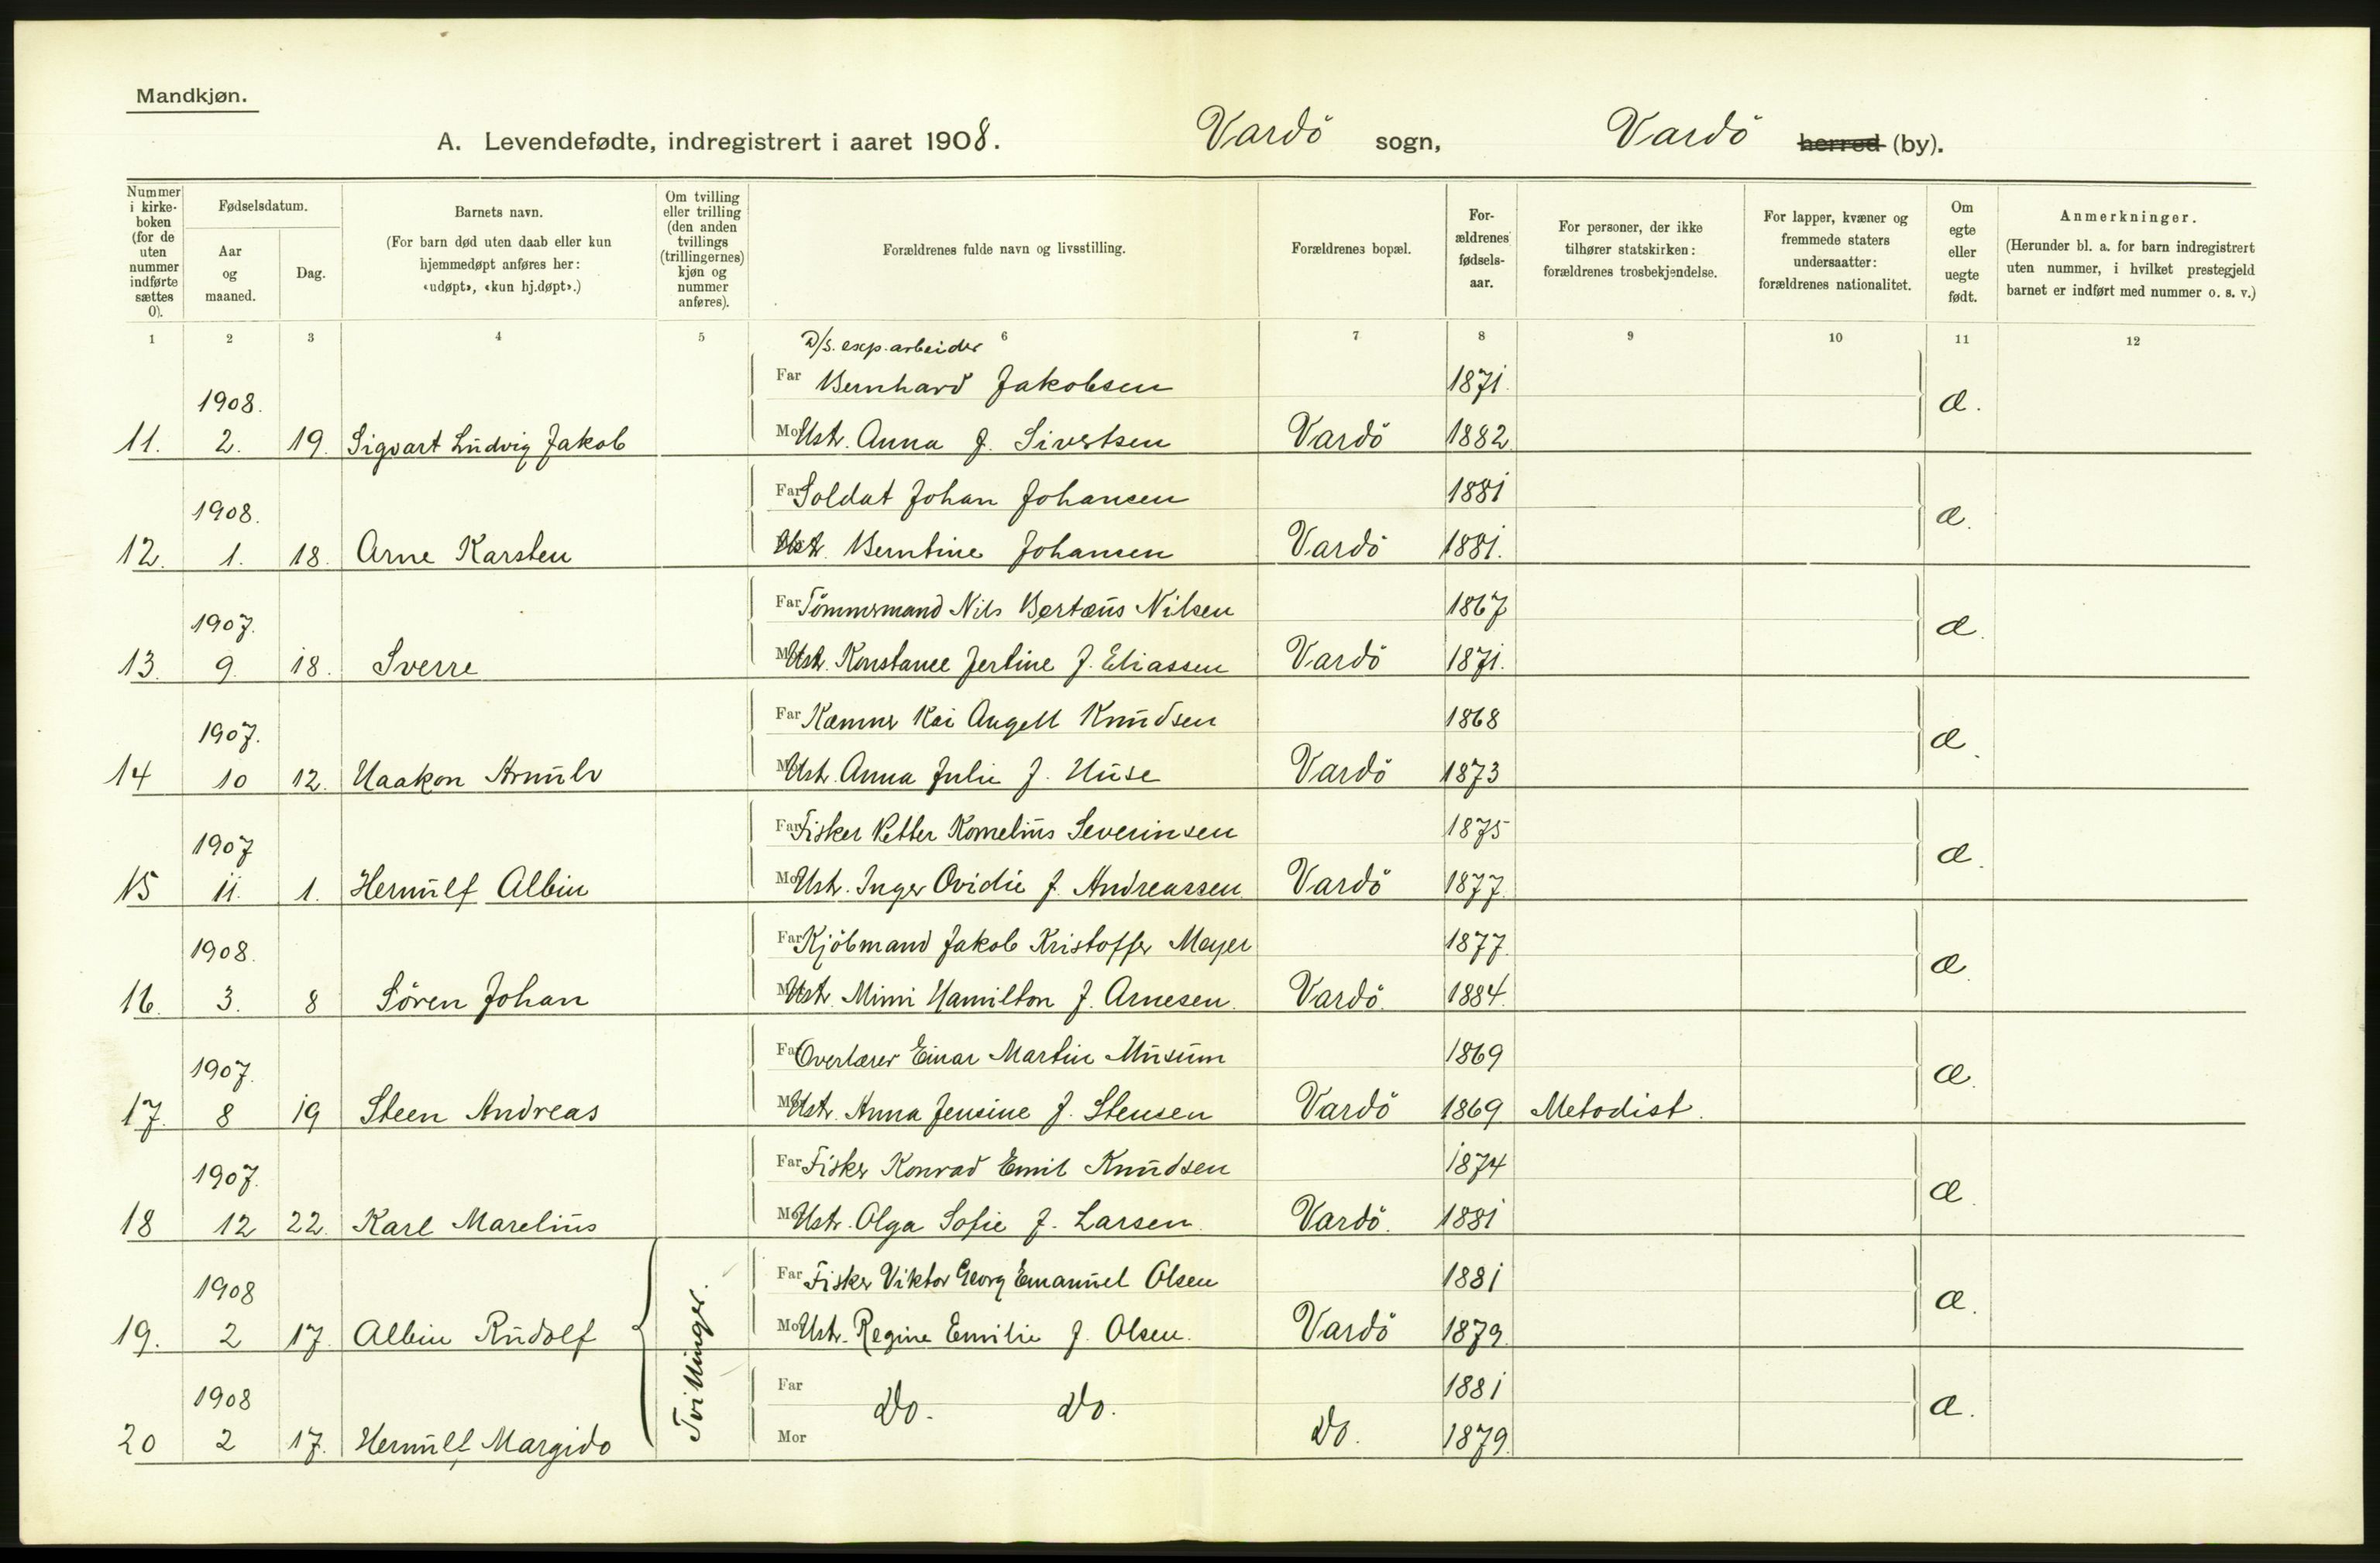 Mandkjøn.
A. Levendefødte, indregistrert i aaret 1908. Vardö sogn, Vardö herred (by).
Nummer i kirke-boken (for de uten nummer indførte sættes 0).
Fødselsdatum.
Aar og maaned.
Dag.
Barnets navn.
(For barn død uten daab eller kun hjemmedøpt anføres her: «udøpt», «kun hj.døpt».)
Om tvilling eller trilling (den anden tvillings (trillingernes) kjøn og nummer anføres).
Forældrenes fulde navn og livsstilling.
Forældrenes bopæl.
For-ældrenes fødsels-aar.
For personer, der ikke tilhører statskirken: forældrenes trosbekjendelse.
For lapper, kvæner og fremmede staters undersaatter: forældrenes nationalitet.
Om egte eller uegte født.
Anmerkninger.
(Herunder bl. a. for barn indregistrert uten nummer, i hvilket prestegjeld barnet er indført med nummer o. s. v.)
1 2 3 4 5 6 7 8 9 10 11 12
D/s. exp. arbeider
Far Bernhard Jakobsen 1871.
1908. æ.
11. 2. 19. Sigvart Ludvig Jakob Mor Hstr. Anna f. Sivertsen Vardö 1882
Far Soldat Johan Johansen 1881
1908. æ.
12. 1. 18. Arne Karsten Hstr. Berntine Johansen Vardö 1881.
Far Tömmermand Nils Bertæus Nilsen 1867
1907. æ.
13. 9. 18. Sverre Mor Hstr. Konstance Jertine f. Eliassen Vardö 1871.
Far Kæmner Kai Angell Knudsen 1868
1907. æ.
14 10 12. Haakon Arnulv Mor Hstr. Anna Julie f. Huse Vardö 1873
Far Fisker Petter Kornelius Severinsen 1875
1907 æ.
15 11. 1. Hernulf Albin Mor Hstr. Inger Ovidie f. Andreassen Vardö 1877.
Far Kjöbmand Jakob Kristoffer Meyer 1877.
1908. æ.
16. 3. 8 Sören Johan Mor Hstr. Mimi Hamilton f. Arnesen. Vardö. 1884.
Far Overlærer Einar Martin Musum 1869
1907. æ.
17. 8 19 Steen Andreas Mor Hstr. Anna Jensine f. Stensen Vardö 1869 Metodist.
Far Fisker Konrad Emil Knudsen 1874
1907. æ.
18 12 22. Karl Marelius Mor Hstr. Olga Sofie f. Larsen. Vardö. 1881
Far Fisker Viktor Georg Emanuel Olsen 1881
1908 æ.
19. 2 17. Albin Rudolf Tvillinger. Mor Hstr. Regine Emilie f. Olsen. Vardö 1879.
Far 1881
1908 Do. Do. æ.
20 2 17. Hernulf Margido Mor Do. 1879.